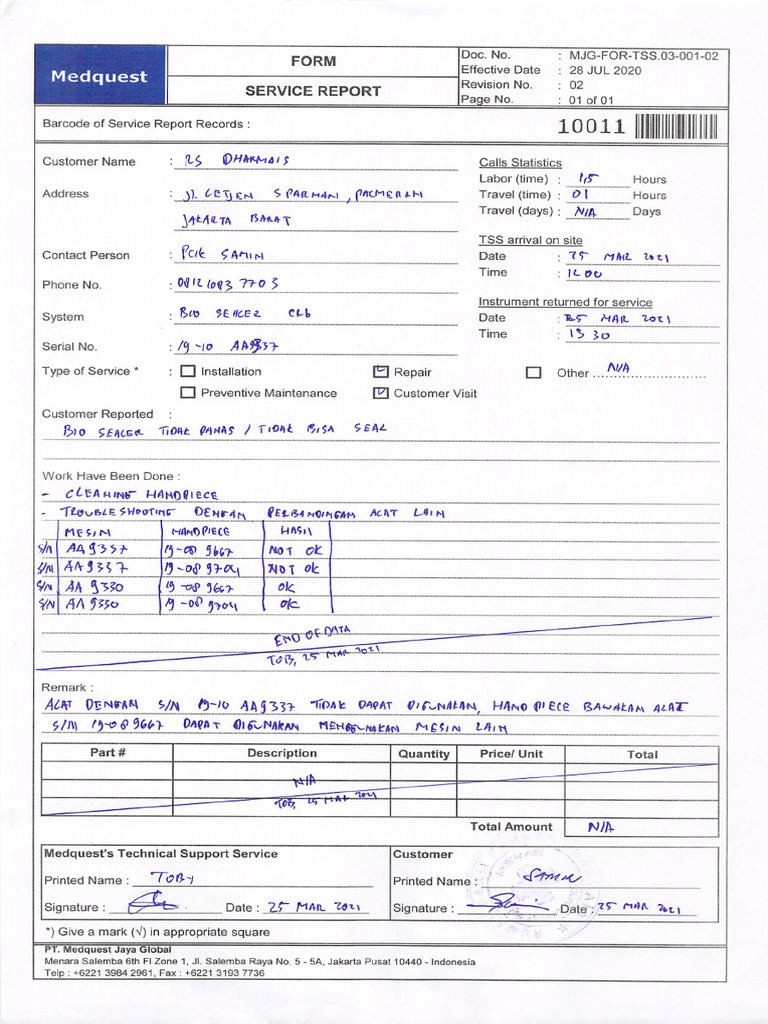 Medquest
FORM
SERVICE REPORT
Doc. No. : MJG-FOR-TSS.03-001-02
Effective Date : 28 JUL 2020
Revision No. : 02
Page No. : 01 of 01
Barcode of Service Report Records :
10011
Customer Name : RS DHARMAIS
Address : Jl. LETJEN S PARMAN, PALMERAH
JAKARTA BARAT
Contact Person : PCIK SAMIN
Phone No. : 0812 1083 7703
System : BIO SEALER CR6
Serial No. : 19-10 AA9337
Calls Statistics
Labor (time) : 1,5 Hours
Travel (time) : 01 Hours
Travel (days) : N/A Days
TSS arrival on site
Date : 25 MAR 2021
Time : 12 00
Instrument returned for service
Date : 25 MAR 2021
Time : 13 30
Type of Service * : Installation Repair Other N/A
Preventive Maintenance Customer Visit
Customer Reported :
BIO SEALER TIDAK PANAS / TIDAK BISA SEAL
Work Have Been Done :
- CLEANING HANDPIECE
- TROUBLESHOOTING DENGAN PERBANDINGAN ALAT LAIN
MESIN HANDPIECE HASIL
S/N AA9337 19-08 9667 NOT OK
S/N AA9337 19-08 9704 NOT OK
S/N AA 9330 19-08 9667 OK
S/N AA 9330 19-08 9704 OK
END OF DATA
TOB, 25 MAR 2021
Remark :
ALAT DENGAN S/N 19-10 AA9337 TIDAK DAPAT DIGUNAKAN, HANDPIECE BAWAAN ALAT
S/N 19-08 9667 DAPAT DIGUNAKAN MENGGUNAKAN MESIN LAIN
Part # Description Quantity Price/ Unit Total
N/A
TOB, 25 MAR 2021
Total Amount N/A
Medquest's Technical Support Service
Printed Name : TOBY
Signature : Date : 25 MAR 2021
Customer
Printed Name : SAMIN
Signature : Date : 25 MAR 2021
*) Give a mark (√) in appropriate square
PT. Medquest Jaya Global
Menara Salemba 6th Fl Zone 1, Jl. Salemba Raya No. 5 - 5A, Jakarta Pusat 10440 - Indonesia
Telp : +6221 3984 2961, Fax : +6221 3193 7736